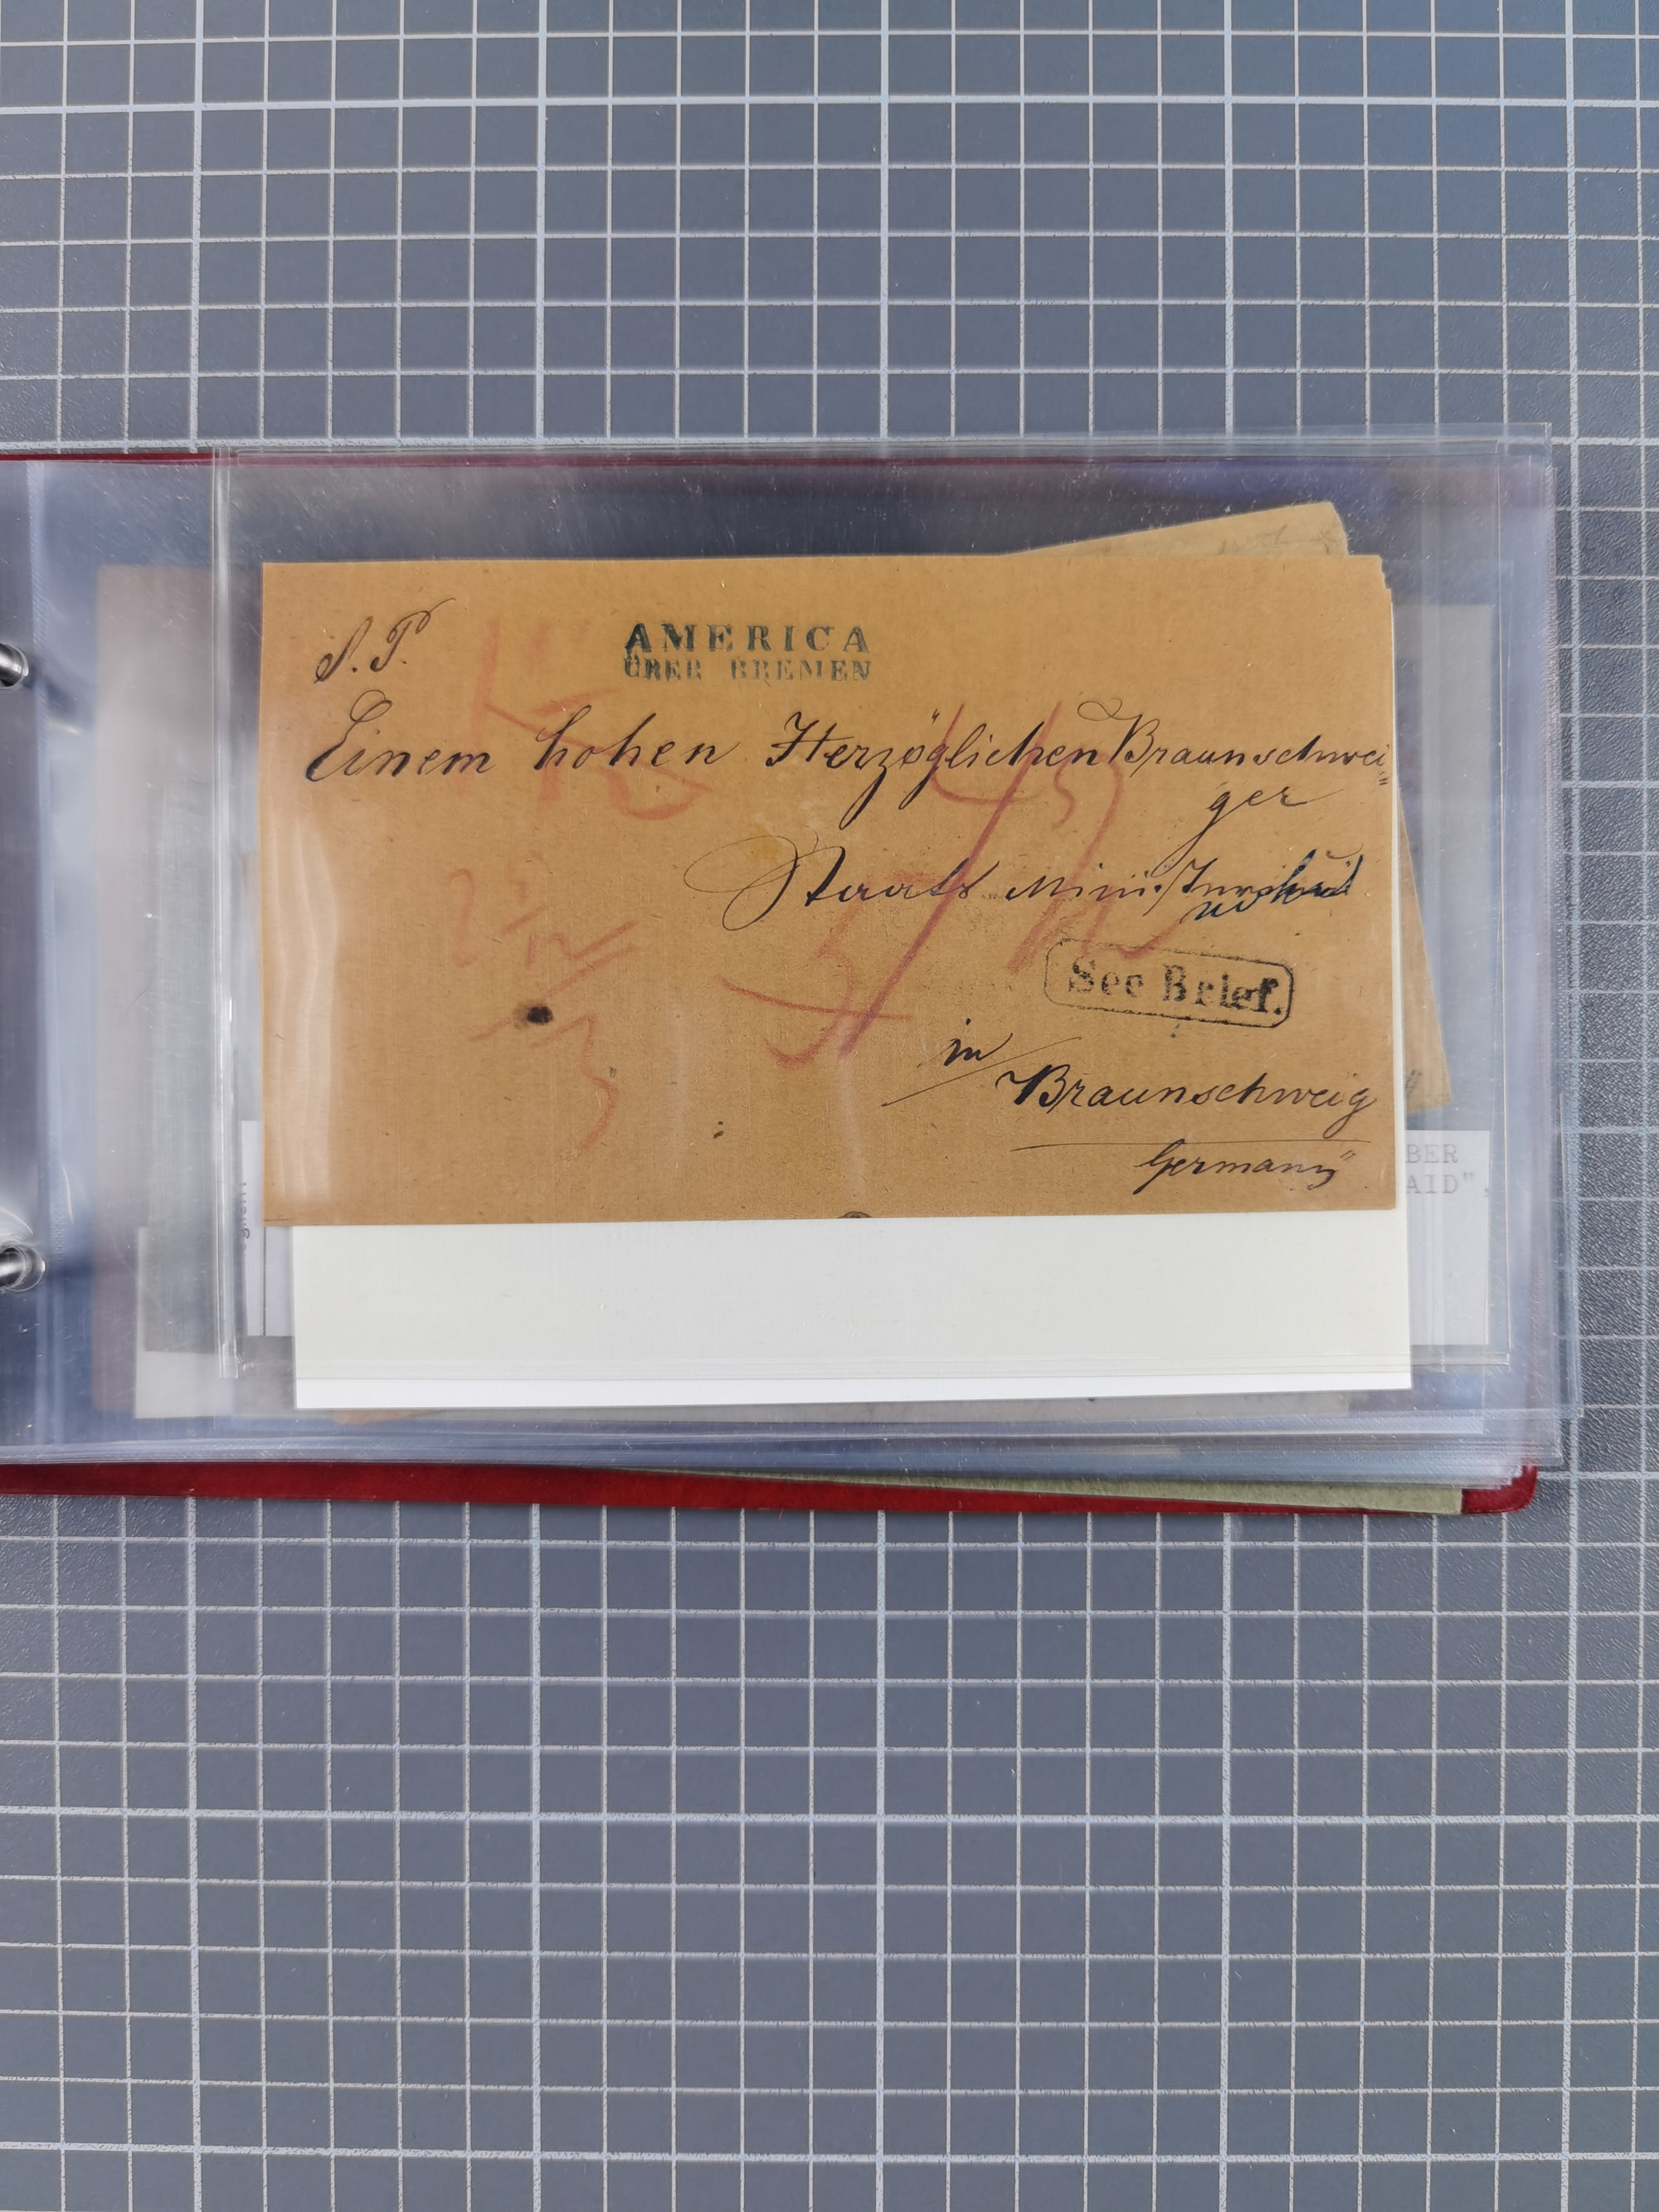 S. T.
AMERICA
ÜBER BREMEN
Einem hohen Herzöglichen Braunschwei=
ger
Staats Mini
See Brief.
in
Braunschweig
Germany
BER
AID",